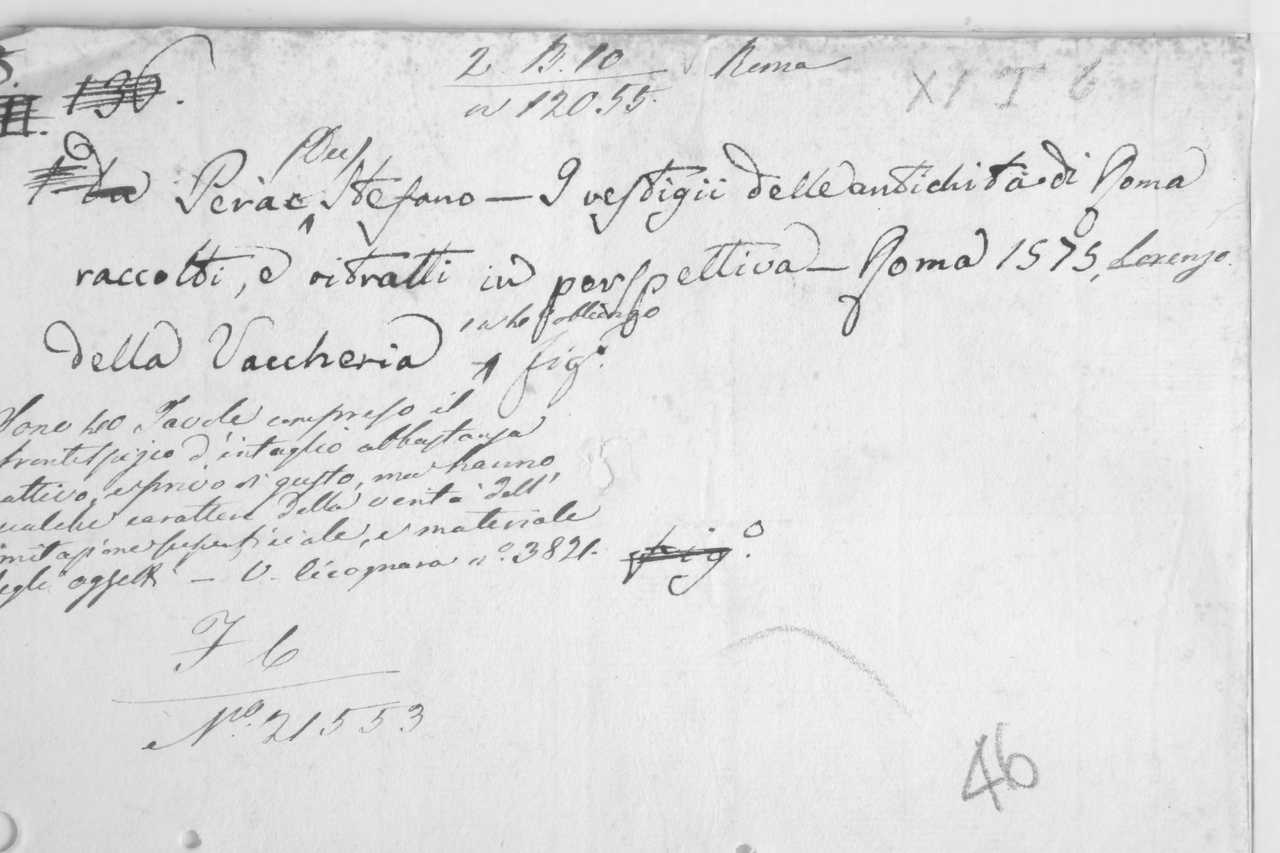 2. B. 10 Roma XI I 6
5. 136.
II. n 120.55.
Du
Perac Stefano — I vestigii delle antichità di Roma
raccolti, e ritratti in perspettiva — Roma 1575, Lorenzo
in fo oblungo
della Vaccheria fig.
Sono 40 Tavole compreso il
frontespizio d'intaglio abbastanza
cattivo, e privo di gusto, ma hanno
qualche carattere della verità dell'
imitazione superficiale, e materiale
degli oggetti — V. Cicognara n.o 3821. fig.o
F 6
N.o 21553
46